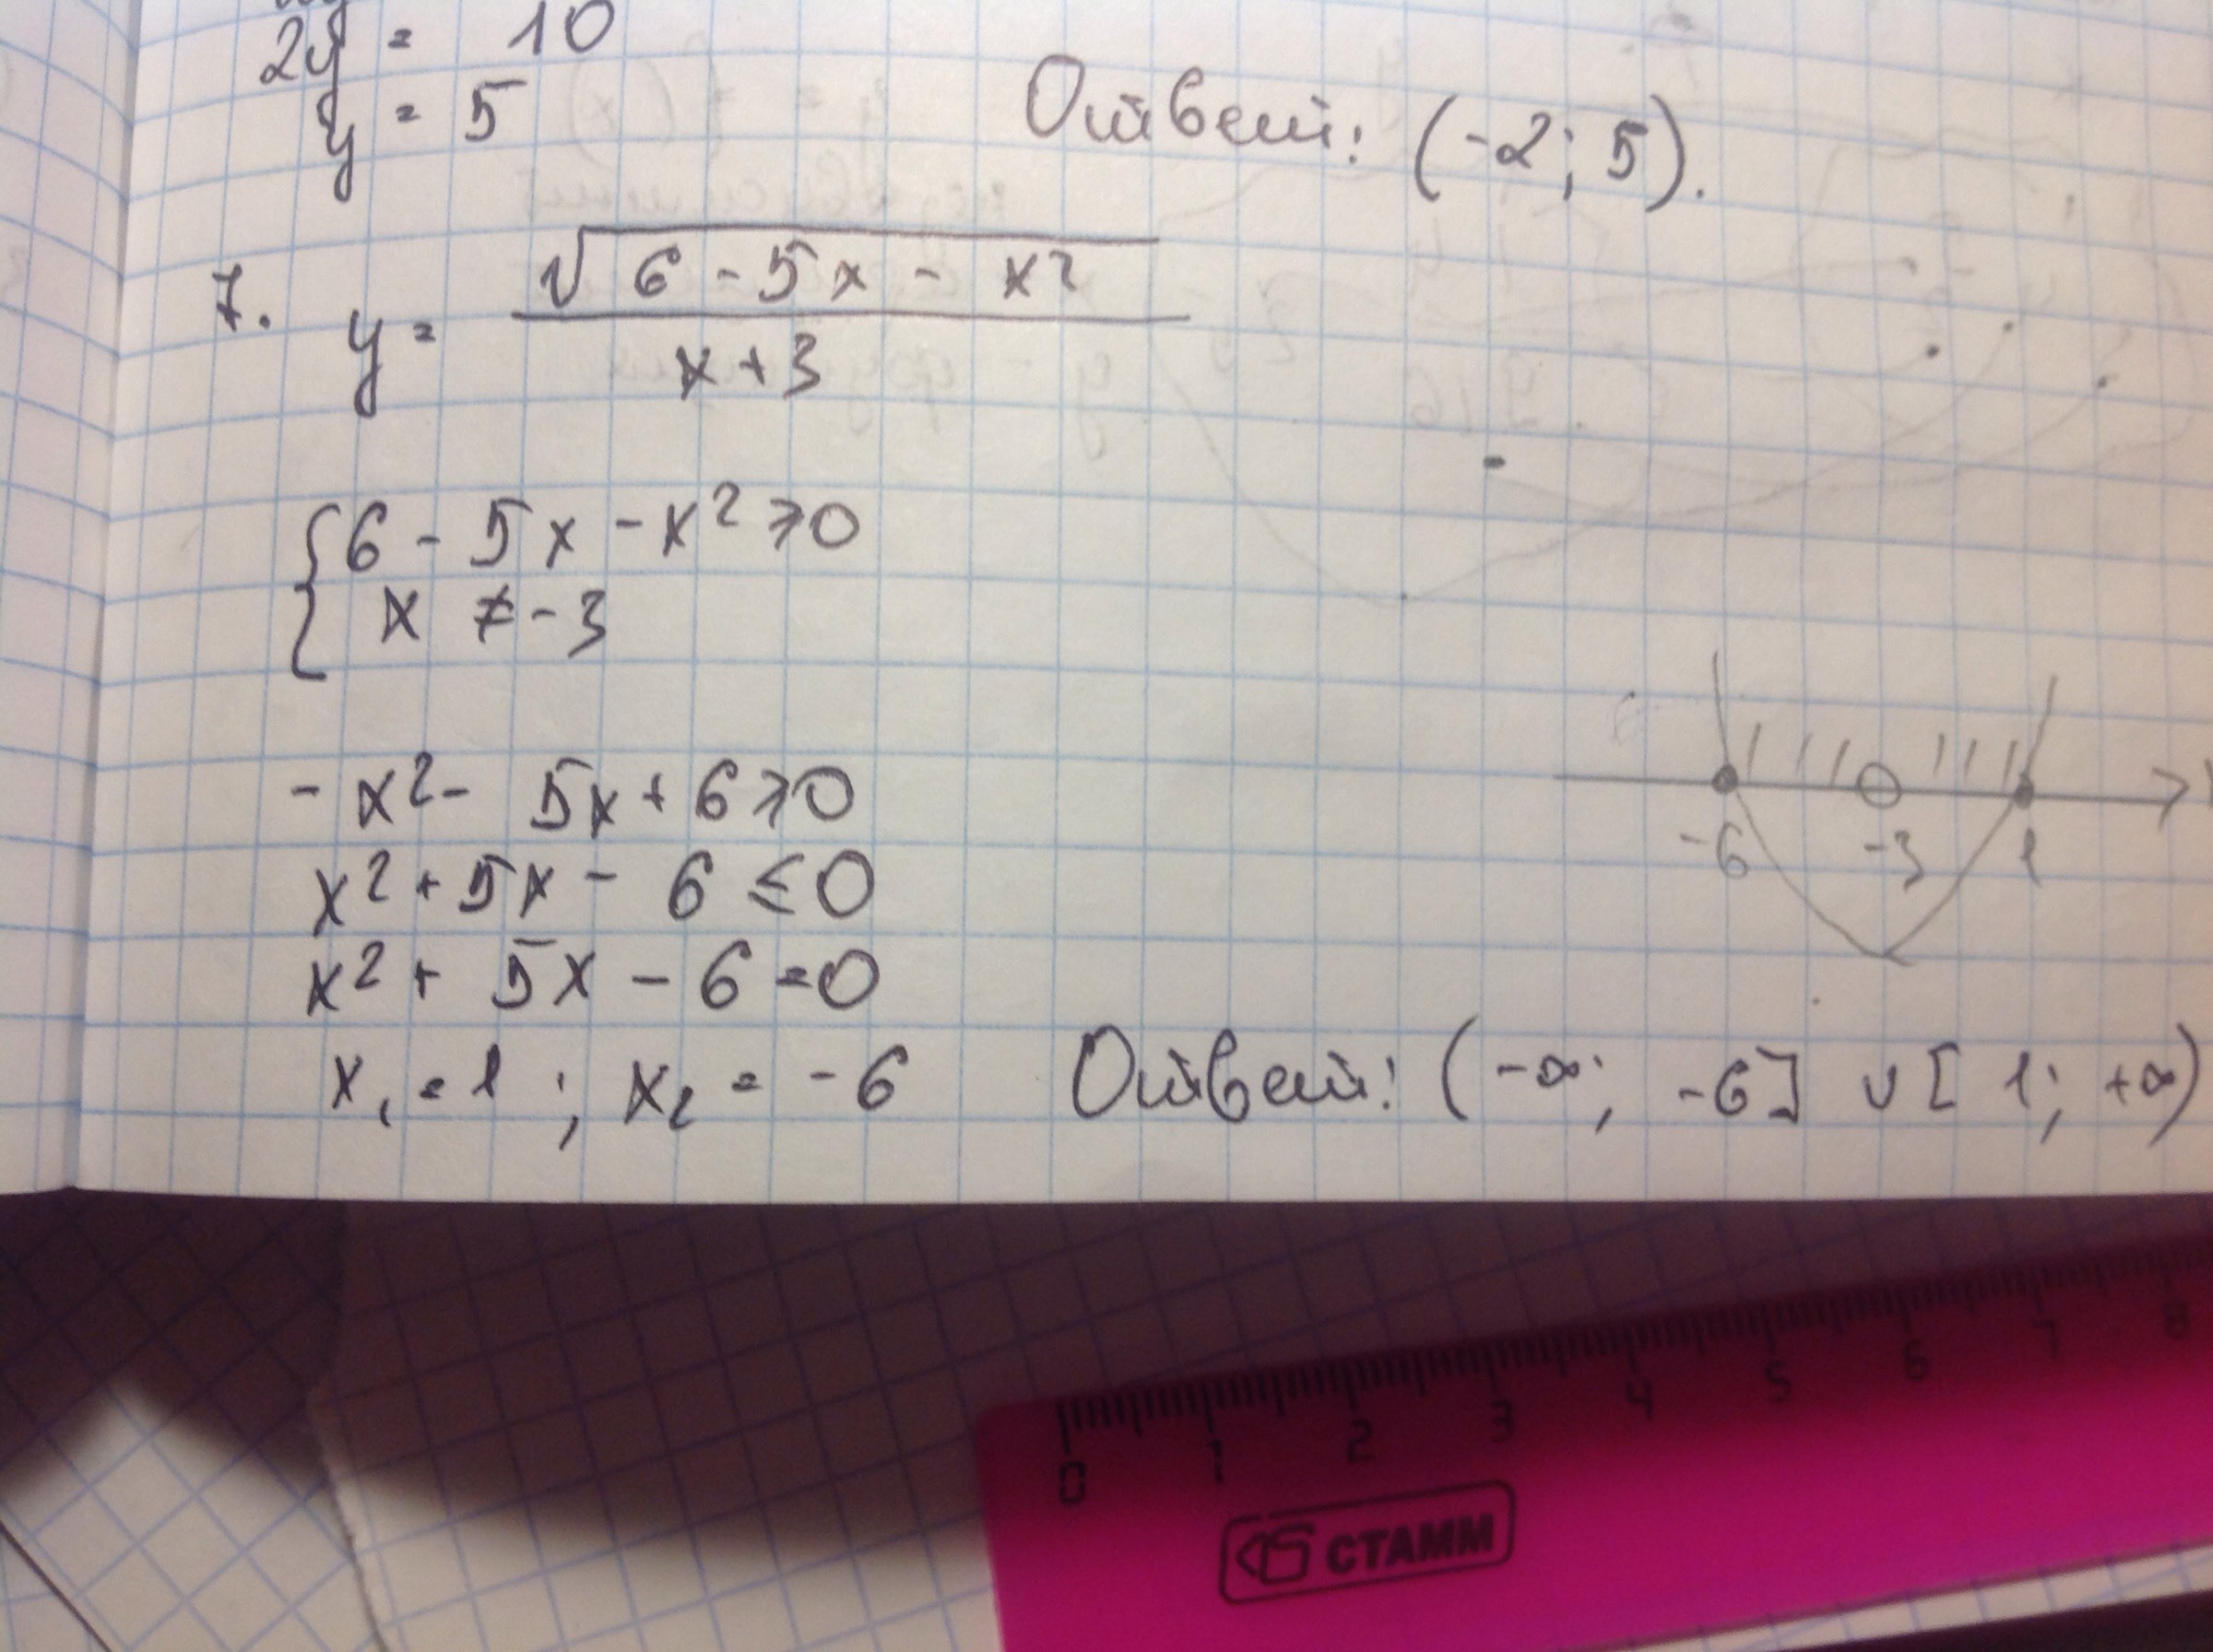 2y = 10
y = 5
Ответ: (-2; 5).
7. y = √(6 - 5x - x²) / (x + 3)
{ 6 - 5x - x² ⩾ 0
x ≠ -3
- x² - 5x + 6 ⩾ 0
x² + 5x - 6 ≤ 0
x² + 5x - 6 = 0
x₁ = 1 ; x₂ = -6
-6 -3 1
Ответ: (-∞; -6] ∪ [1; +∞)
0 1 2 3 4 5 6 7 8
СТАММ